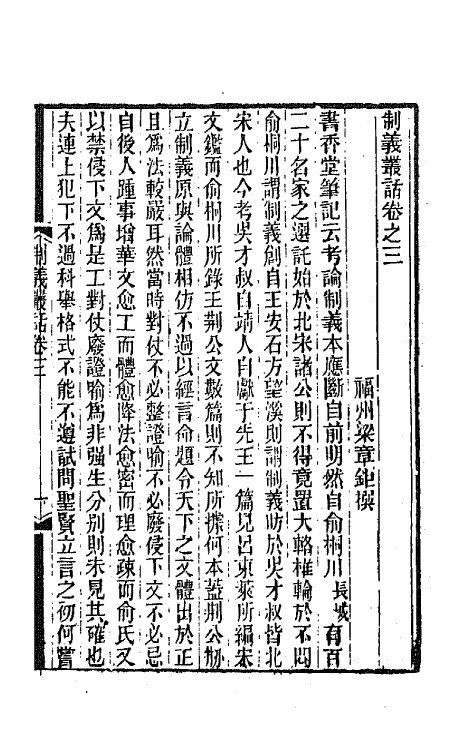 制義叢話卷之三
福州梁章鉅撰
書香堂筆記云考論制義本應斷自前明然自俞桐川長城有百
二十名家之選託始於北宋諸公則不得竟置大輅椎輪於不問
俞桐川謂制義創自王安石方望溪則謂制義昉於吳才叔皆北
宋人也今考吳才叔自靖人自獻于先王一篇見呂東萊所編宋
文鑑而俞桐川所錄王荆公文數篇則不知所據何本蓋荆公刱
立制義原與論體相仿不過以經言命題令天下之文體出於正
且爲法較嚴耳然當時對仗不必整證喻不必廢侵下文不必忌
自後人踵事增華文愈工而體愈降法愈密而理愈疎而俞氏又
以禁侵下文爲是工對仗廢證喻爲非强生分别則未見其確也
夫連上犯下不過科舉格式不能不遵試問聖賢立言之初何嘗
制義叢話卷三